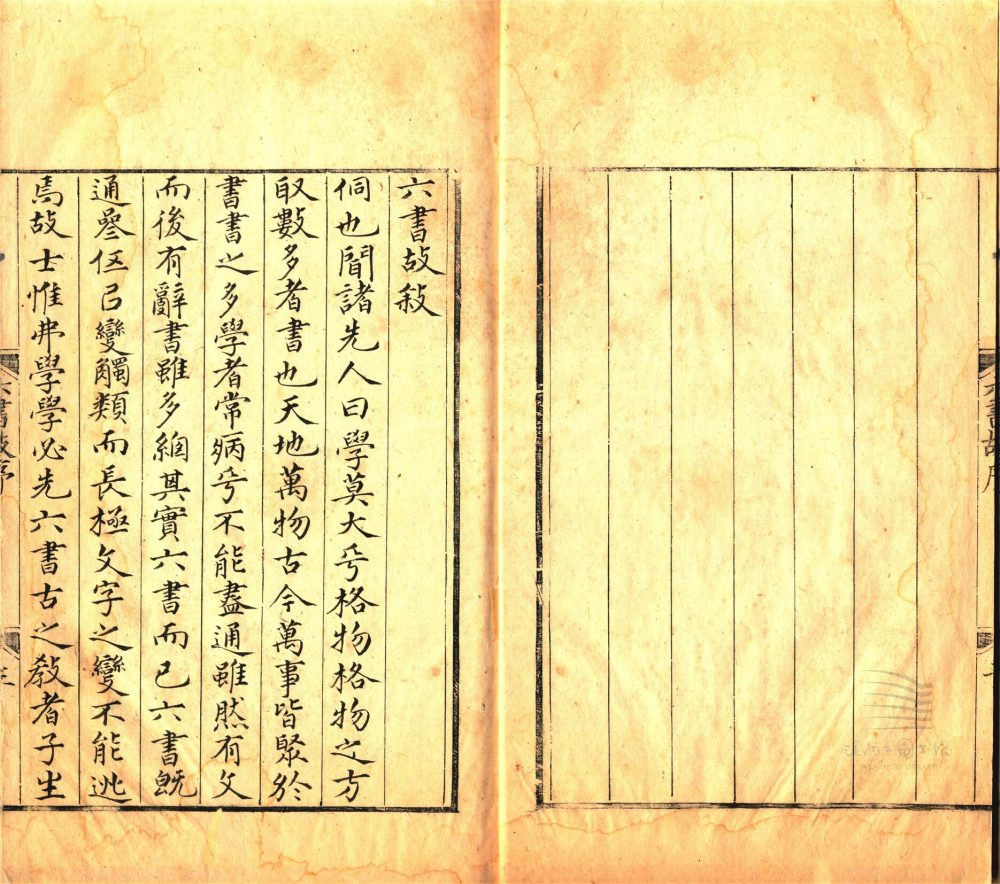 六書故序
六書故敍
侗也聞諸先人曰學莫大乎格物格物之方
取數多者書也天地萬物古今萬事皆聚於
書書之多學者常病乎不能盡通雖然有文
而後有辭書雖多緫其實六書而已六書既
通參伍㠯變觸類而長極文字之變不能逃
焉故士惟弗學學必先六書古之敎者子生
六書故序
WENZHOU LIBRARY